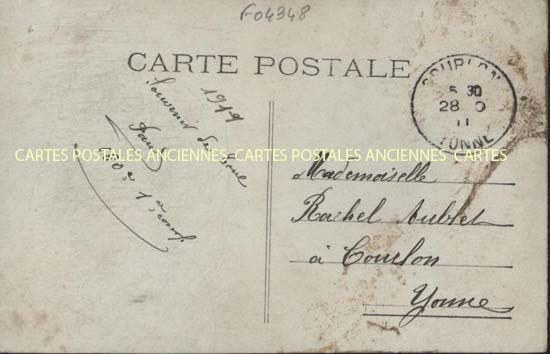 F04348
CARTE POSTALE
COURLON
5 30
28 0
11
YONNE
1919
Souvenir de
CARTES POSTALES ANCIENNES CARTES POSTALES ANCIENNES CARTES
Mademoiselle
Rachel Aublet
à Courlon
Yonne